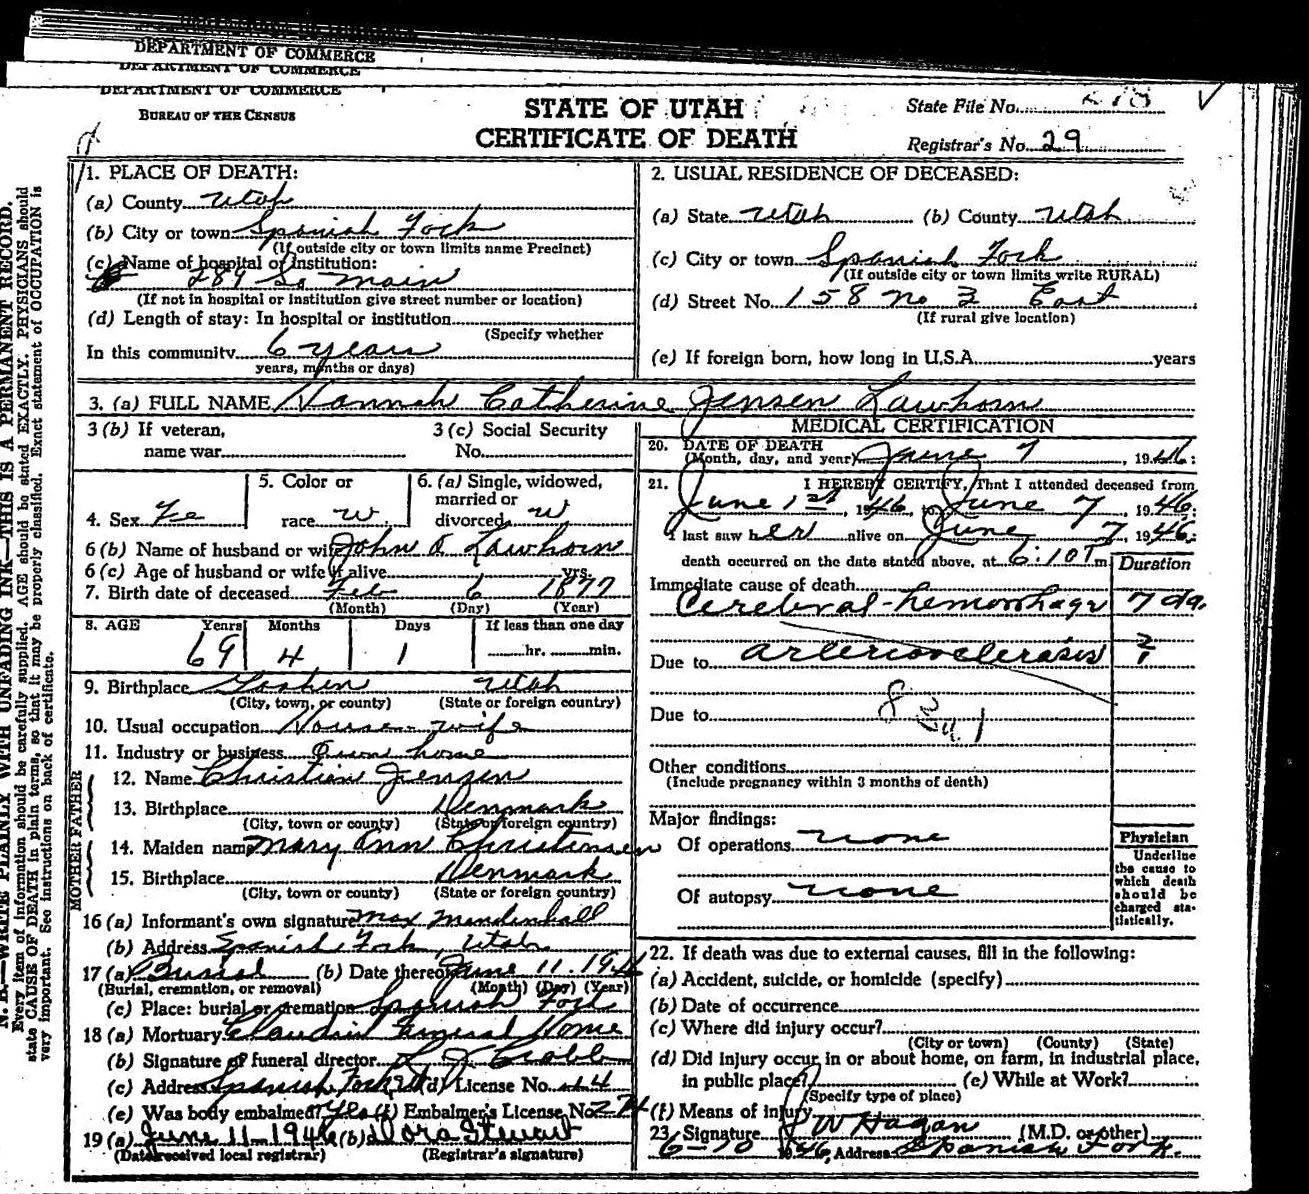 DEPARTMENT OF COMMERCE
DEPARTMENT OF COMMERCE
DEPARTMENT OF COMMERCE
BUREAU OF THE CENSUS
STATE OF UTAH
CERTIFICATE OF DEATH
State File No.
Registrar's No. 29
N. B.—WRITE PLAINLY WITH UNFADING INK—THIS IS A PERMANENT RECORD.
Every item of information should be carefully supplied. AGE should be stated EXACTLY. PHYSICIANS should
state CAUSE OF DEATH in plain terms, so that it may be properly classified. Exact statement of OCCUPATION is
very important. See instructions on back of certificate.
1. PLACE OF DEATH:
(a) County Utah
(b) City or town Spanish Fork
(If outside city or town limits name Precinct)
(c) Name of hospital or institution:
289 So Main
(If not in hospital or institution give street number or location)
(d) Length of stay: In hospital or institution
(Specify whether
In this community 6 years
years, months or days)
2. USUAL RESIDENCE OF DECEASED:
(a) State Utah (b) County Utah
(c) City or town Spanish Fork
(If outside city or town limits write RURAL)
(d) Street No. 158 No 3 East
(If rural give location)
(e) If foreign born, how long in U.S.A. years
3. (a) FULL NAME Hannah Catherine Jensen Lawhorn
3 (b) If veteran,
name war
3 (c) Social Security
No.
4. Sex Fe
5. Color or
race w
6. (a) Single, widowed,
married or
divorced w
6 (b) Name of husband or wife John A Lawhorn
6 (c) Age of husband or wife if alive yrs.
7. Birth date of deceased Feb 6 1877
(Month) (Day) (Year)
8. AGE Years Months Days If less than one day
69 4 1 hr. min.
9. Birthplace Goshen Utah
(City, town, or county) (State or foreign country)
10. Usual occupation House-wife
11. Industry or business Own home
FATHER
12. Name Christian Jensen
13. Birthplace Denmark
(City, town or county) (State or foreign country)
MOTHER
14. Maiden name Mary Ann Christensen
15. Birthplace Denmark
(City, town or county) (State or foreign country)
16 (a) Informant's own signature Max Mendenhall
(b) Address Spanish Fork, Utah
17 (a) Burial (b) Date thereof June 11. 1946
(Burial, cremation, or removal) (Month) (Day) (Year)
(c) Place: burial or cremation Spanish Fork
18 (a) Mortuary Claudin Funeral Home
(b) Signature of funeral director
(c) Address Spanish Fork Ut (d) License No.
(e) Was body embalmed? Yes (f) Embalmer's License No. 274
19 (a) June 11-1946 (b) Dora Stewart
(Date received local registrar) (Registrar's signature)
MEDICAL CERTIFICATION
20. DATE OF DEATH
(Month, day, and year) June 7, 1946:
21. I HEREBY CERTIFY, That I attended deceased from
June 1st, 1946, to June 7, 1946;
I last saw her alive on June 7, 1946;
death occurred on the date stated above, at 6:10 P m.
Duration
Immediate cause of death
Cerebral-hemorrhage 7 da.
Due to arteriosclerosis ?
Due to
Other conditions
(Include pregnancy within 3 months of death)
Major findings:
Of operations none
Of autopsy none
Physician
Underline
the cause to
which death
should be
charged sta-
tistically.
22. If death was due to external causes, fill in the following:
(a) Accident, suicide, or homicide (specify)
(b) Date of occurrence
(c) Where did injury occur?
(City or town) (County) (State)
(d) Did injury occur in or about home, on farm, in industrial place,
in public place? (e) While at Work?
(Specify type of place)
(f) Means of injury
23. Signature J W Hagan (M.D. or other)
6-10 1946, Address Spanish Fork.